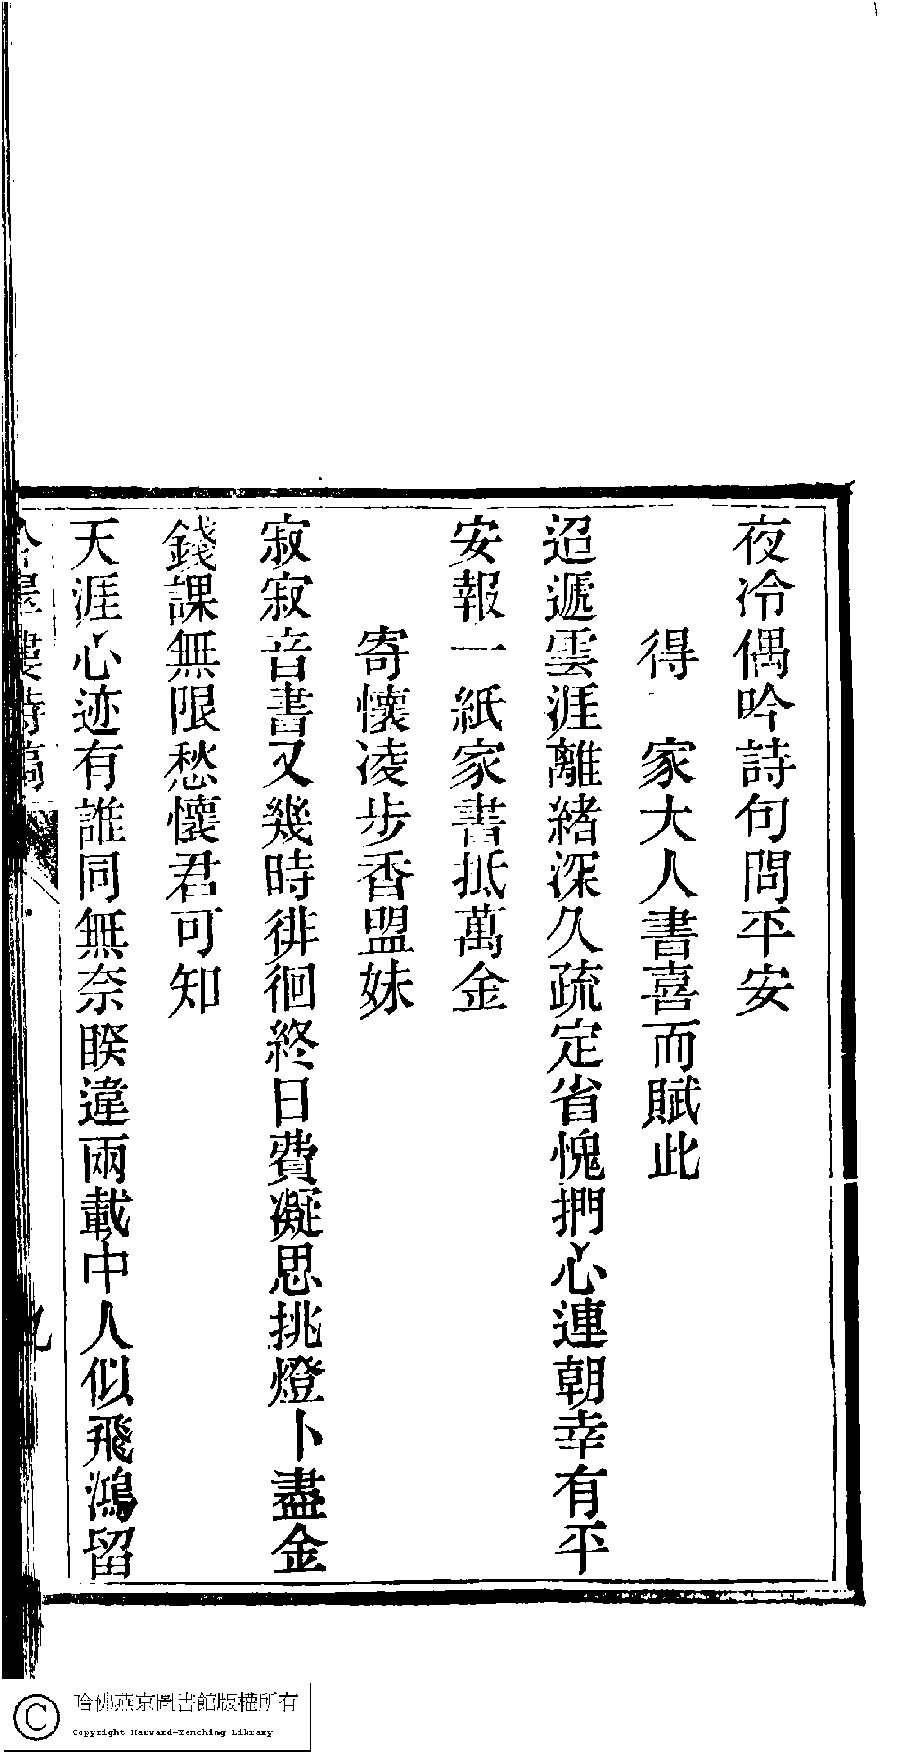 夜冷偶吟詩句問平安
得　家大人書喜而賦此
迢遞雲涯離緒深久疏定省愧捫心連朝幸有平
安報一紙家書抵萬金
寄懷凌步香盟妹
寂寂音書又幾時徘徊終日費凝思挑燈卜盡金
錢課無限愁懷君可知
天涯心迹有誰同無奈睽違兩載中人似飛鴻留
樓詩稿
九
哈佛燕京圖書館版權所有
Copyright Harvard-Yenching Library